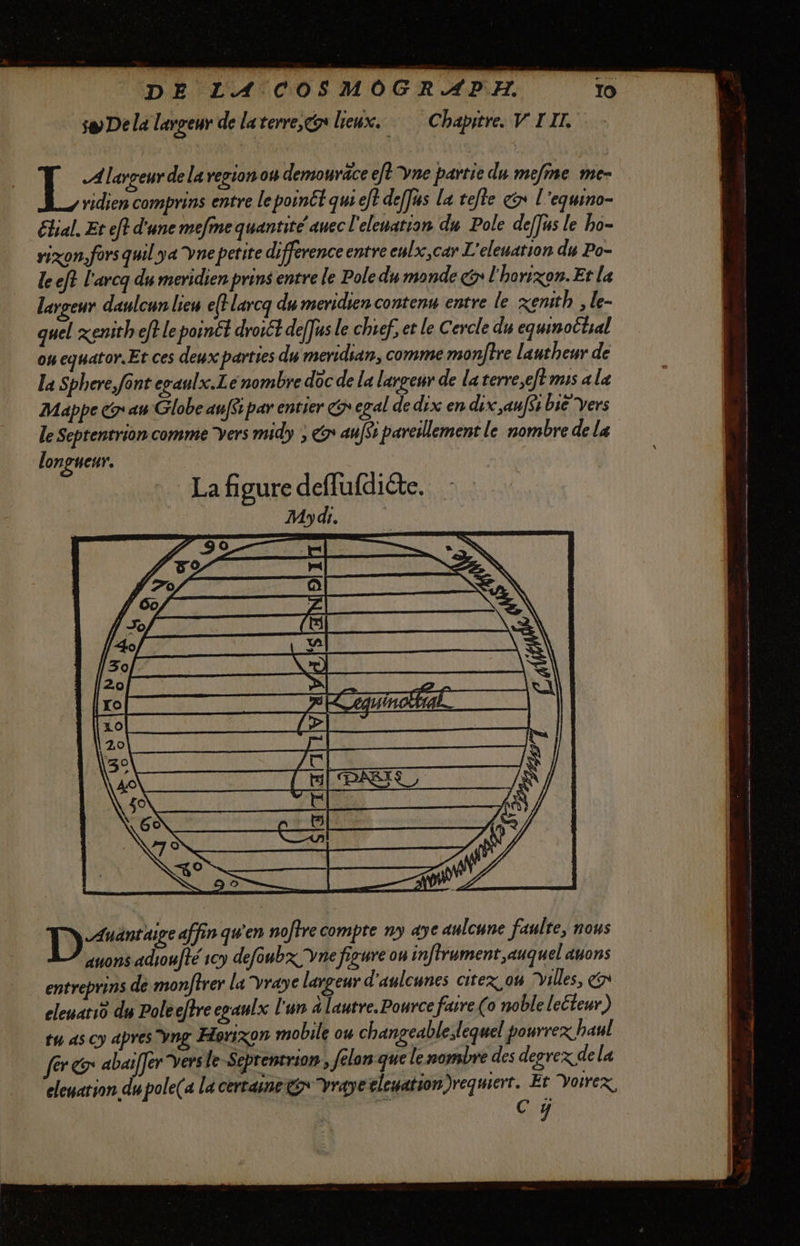 DE LA COSMOGRAPH. 10
De la largeur de la terre, & lieux. Chapitre. VIII.
La largeur de la region ou demourãce eſt vne partie du meſme me-
ridien comprins entre le poinct qui eſt deſſus la teſte & l'equino-
ctial. Et eſt d'une meſme quantité auec l'eleuation du Pole deſſus le ho-
rizon, fors quil ya vne petite difference entre eulx, car L'eleuation du Po-
le eſt l'arcq du meridien prins entre le Pole du monde & l'horizon. Et la
largeur daulcun lieu eſt larcq du meridien contenu entre le zenith , le-
quel zenith eſt le poinct droict deſſus le chief, et le Cercle du equinoctial
ou equator. Et ces deux parties du meridian, comme monſtre lautheur de
la Sphere, ſont egaulx. Le nombre dõc de la largeur de la terre, eſt mis a la
Mappe & au Globe auſſi par entier & egal de dix en dix, auſſi biẽ vers
le Septentrion comme vers midy ; & auſſi pareillement le nombre de la
longueur.
La figure deſſuſdicte.
Mydi.
90
80
70
60
50
40
30
20
10
10
20
30
40
50
60
70
80
90
LIGNES PARALLELES
Lequinoctial
PARIS
Dauantaige affin qu'en noſtre compte ny aye aulcune faulte, nous
auons adiouſté icy deſoubz vne figure ou inſtrument, auquel auons
entreprins de monſtrer la vraye largeur d'aulcunes citez, ou villes, &
eleuatiõ du Pole eſtre egaulx l'un a lautre. Pource faire (o noble lecteur)
tu as cy apres vng Horizon mobile ou changeable, lequel pourrez haul
ſer & abaiſſer vers le Septentrion, ſelon que le nombre des degrez de la
eleuation du pole (a la certaine & vraye eleuation) requiert. Et voirez,
C ij